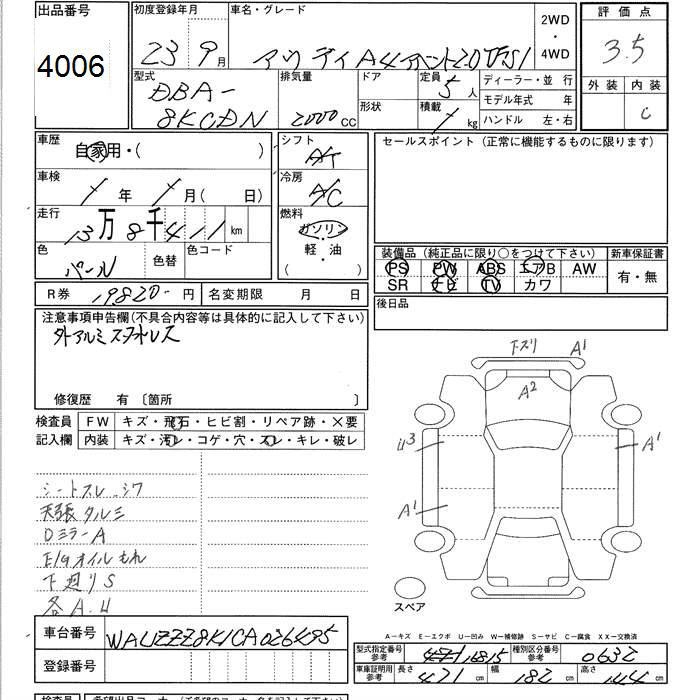 出品番号
4006
初度登録年月
23 9月
車名・グレード
アウディA4アバント2.0TFSI
2WD
・
4WD
評価点
3.5
外装 内装
C
型式
DBA-
8KCDN
排気量
2000cc
ドア
形状
定員
5人
積載
kg
ディーラー・並行
モデル年式 年
ハンドル 左・右
車歴
自家用・( )
車検
年 月( 日)
走行
13万8千411km
色
パール
色替
色コード
シフト
A/T
冷房
A/C
燃料
ガソリン
・
軽・油
( )
セールスポイント(正常に機能するものに限ります)
装備品(純正品に限り○をつけて下さい)
PS PW ABS エアB AW
SR ナビ TV カワ
新車保証書
有・無
R券 19820-円
名変期限 月 日
後日品
注意事項申告欄(不具合内容等は具体的に記入して下さい)
外アルミスタホレス
修復歴 有〔箇所 〕
検査員
記入欄
FW キズ・飛石・ヒビ割・リペア跡・×要
内装 キズ・汚レ・コゲ・穴・スレ・キレ・破レ
シートスレ シワ
天張タルミ
DミラーA
E/Gオイルもれ
下廻りS
各A.U
下ズリ A1
A2
U3
A1
A1
スペア
A-キズ E-エクボ U-凹み W-補修跡 S-サビ C-腐食 XX-交換済
車台番号 WAUZZZ8K1CA026495
登録番号
型式指定番号
参考
16815
種別区分番号
参考
0632
車庫証明用
参考
長さ 471cm 幅 182cm 高さ 144cm